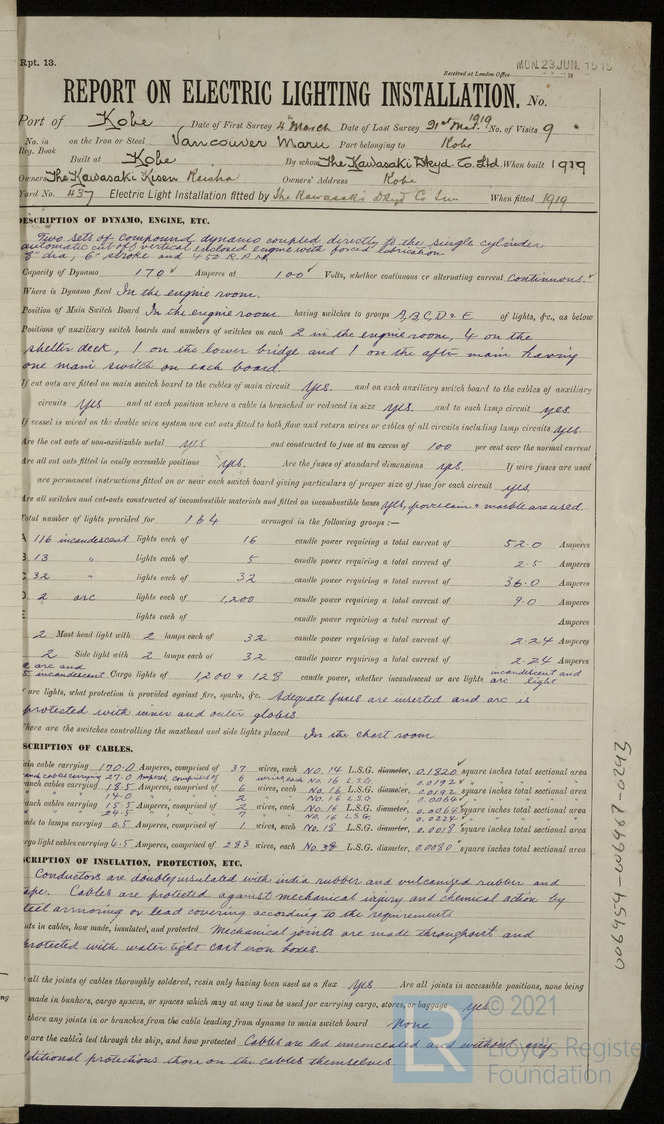 Rpt. 13.
MON. 23 JUN. 1919
Received at London Office
REPORT ON ELECTRIC LIGHTING INSTALLATION. No.
Port of Kobe Date of First Survey 4th March Date of Last Survey 31st Mar. 1919 No. of Visits 9
No. in Reg. Book on the Iron or Steel Vancouver Maru Port belonging to Kobe
Built at Kobe By whom The Kawasaki Dkyd. Co. Ltd. When built 1919
Owners The Kawasaki Kisen Kaisha Owners' Address Kobe
Yard No. 437 Electric Light Installation fitted by The Kawasaki Dkyd Co Ltd When fitted 1919
DESCRIPTION OF DYNAMO, ENGINE, ETC.
Two sets of compound dynamo coupled directly to the single cylinder
automatic cut off vertical enclosed engine with forced lubrication
8" dia, 6" stroke and 450 R.P.M.
Capacity of Dynamo 170 Amperes at 100 Volts, whether continuous or alternating current Continuous.
Where is Dynamo fixed In the engine room.
Position of Main Switch Board In the engine room having switches to groups A, B, C, D & E of lights, &c., as below
Positions of auxiliary switch boards and numbers of switches on each 2 in the engine room, 4 on the
shelter deck, 1 on the lower bridge and 1 on the after main having
one main switch on each board.
If cut outs are fitted on main switch board to the cables of main circuit Yes. and on each auxiliary switch board to the cables of auxiliary
circuits Yes and at each position where a cable is branched or reduced in size yes. and to each lamp circuit yes.
If vessel is wired on the double wire system are cut outs fitted to both flow and return wires or cables of all circuits including lamp circuits Yes.
Are the cut outs of non-oxidizable metal yes and constructed to fuse at an excess of 100 per cent over the normal current
Are all cut outs fitted in easily accessible positions Yes. Are the fuses of standard dimensions yes. If wire fuses are used
are permanent instructions fitted on or near each switch board giving particulars of proper size of fuse for each circuit yes
Are all switches and cut-outs constructed of incombustible materials and fitted on incombustible bases Yes, porcelain & marble are used.
Total number of lights provided for 164 arranged in the following groups :—
A 116 incandescent lights each of 16 candle power requiring a total current of 52.0 Amperes
B 13 " lights each of 5 candle power requiring a total current of 2.5 Amperes
C 32 " lights each of 32 candle power requiring a total current of 36.0 Amperes
D 2 arc lights each of 1,200 candle power requiring a total current of 9.0 Amperes
E lights each of candle power requiring a total current of Amperes
2 Mast head light with 2 lamps each of 32 candle power requiring a total current of 2.24 Amperes
2 Side light with 2 lamps each of 32 candle power requiring a total current of 2.24 Amperes
2 arc and
5 incandescent Cargo lights of 1,200 & 128 candle power, whether incandescent or arc lights incandescent and arc light
arc lights, what protection is provided against fire, sparks, &c. Adequate fuses are inserted and arc is
protected with inner and outer globes.
Where are the switches controlling the masthead and side lights placed In the chart room
SCRIPTION OF CABLES.
ain cable carrying 170.0 Amperes, comprised of 37 wires, each No. 14 L.S.G. diameter, 0.1820 square inches total sectional area
anch cables carrying 27.0 Amperes, comprised of 6 wires, each No. 16 L.S.G. 0.0192
anch cables carrying 18.5 Amperes, comprised of 6 wires, each No. 16 L.S.G. diameter, 0.0192 square inches total sectional area
14.0 2 No. 16 L.S.G. 0.0064
anch cables carrying 15.5 Amperes, comprised of 2 wires, each No. 16 L.S.G. diameter, 0.0064 square inches total sectional area
24.5 7 No. 16 L.S.G. 0.0224
ads to lamps carrying 0.5 Amperes, comprised of 1 wires, each No. 18 L.S.G. diameter, 0.0018 square inches total sectional area
rgo light cables carrying 4.5 Amperes, comprised of 283 wires, each No. 38 L.S.G. diameter, 0.0080 square inches total sectional area
SCRIPTION OF INSULATION, PROTECTION, ETC.
Conductors are doubly insulated with india rubber and vulcanized rubber and
ape. Cables are protected against mechanical injury and chemical action by
teel armoring or lead covering according to the requirements
nts in cables, how made, insulated, and protected Mechanical joints are made throughout and
protected with water tight cast iron boxes.
all the joints of cables thoroughly soldered, resin only having been used as a flux Yes Are all joints in accessible positions, none being
made in bunkers, cargo spaces, or spaces which may at any time be used for carrying cargo, stores, or baggage yes
there any joints in or branches from the cable leading from dynamo to main switch board None
w are the cables led through the ship, and how protected Cables are led unconcealed and without any
dditional protections than on the cables themselves
006954-006967-0293
LR
© 2021
Lloyd's Register
Foundation